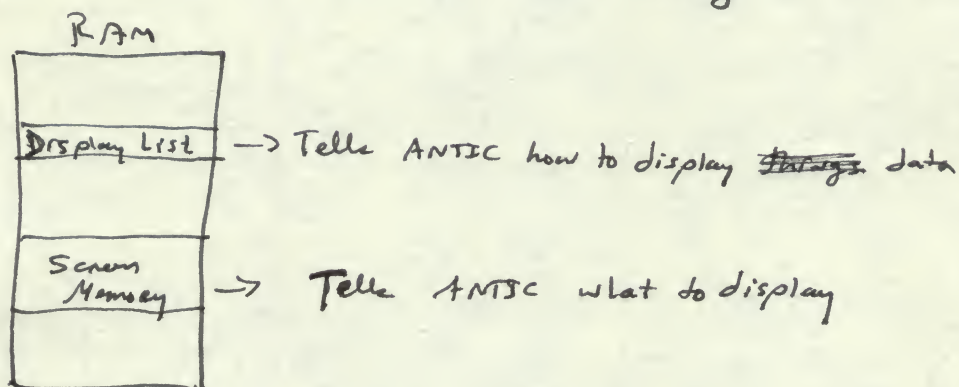 RAM
Display List -> Tells ANTIC how to display things data
Screen
Memory -> Tells ANTIC what to display